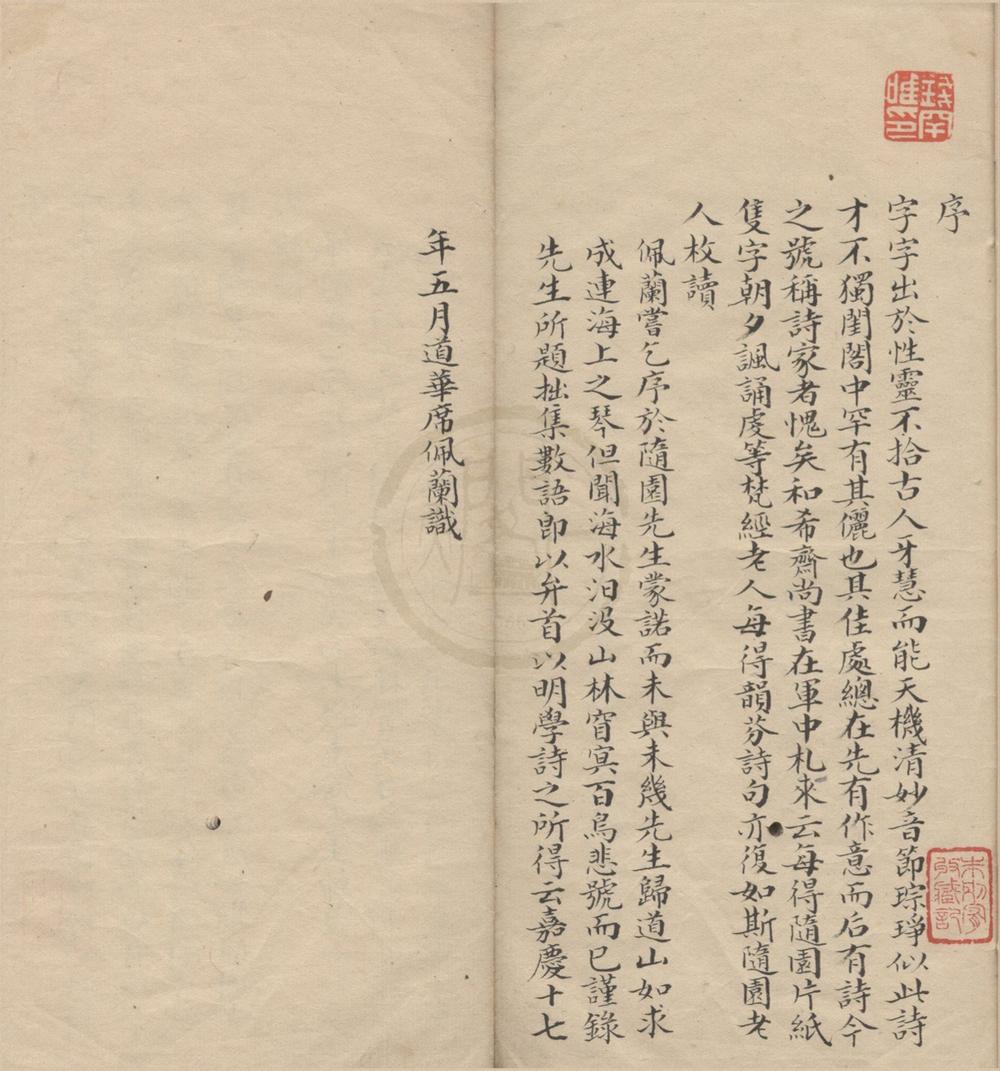 序
字字出於性靈不拾古人牙慧而能天機清妙音節琮琤似此詩
才不獨閨閤中罕有其儷也其佳處總在先有作意而后有詩今
之號稱詩家者愧矣和希齋尚書在軍中札來云每得隨園片紙
隻字朝夕諷誦虔等梵經老人每得韻芬詩句亦復如斯隨園老
人枚讀
佩蘭嘗乞序於隨園先生蒙諾而未與未幾先生歸道山如求
成連海上之琴但聞海水汨没山林窅冥百鳥悲號而已謹錄
先生所題拙集數語即以弁首以明學詩之所得云嘉慶十七
年五月道華席佩蘭識